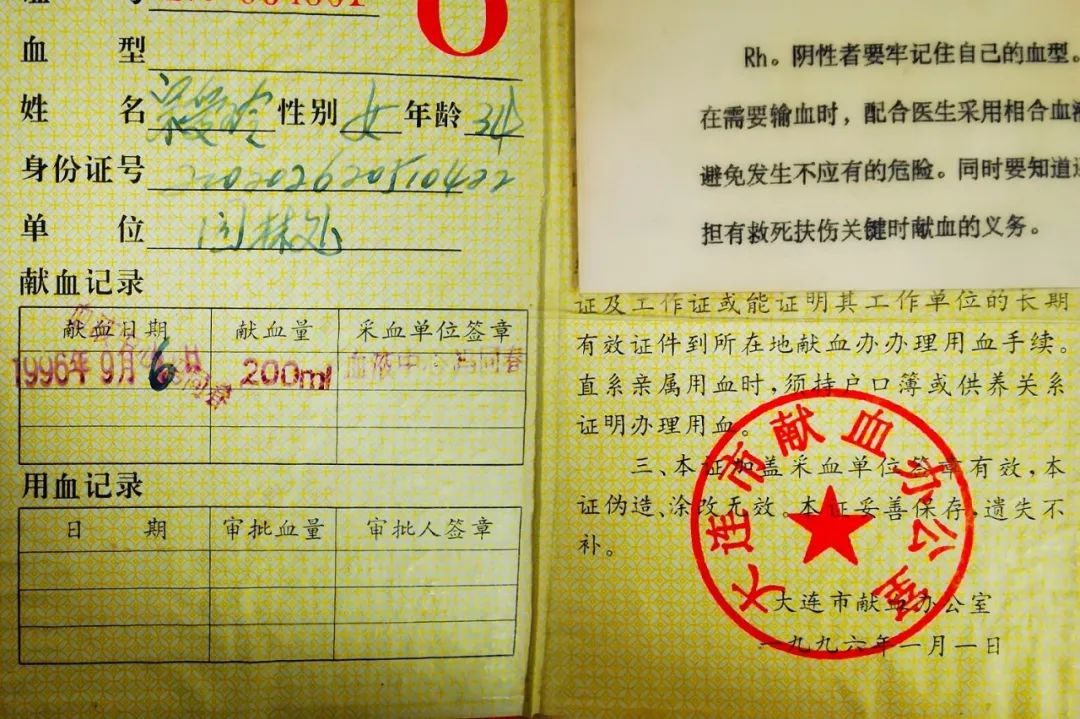 O
血型
姓名 梁爱玲 性别 女 年龄 34
身份证号
单位
献血记录
献血日期 献血量 采血单位签章
1996年9月6日 200ml 血液中心 冯同春
用血记录
日期 审批血量 审批人签章
Rh。阴性者要牢记住自己的血型。
在需要输血时,配合医生采用相合血液
避免发生不应有的危险。同时要知道
担有救死扶伤关键时献血的义务。
证及工作证或能证明其工作单位的长期
有效证件到所在地献血办办理用血手续。
直系亲属用血时,须持户口簿或供养关系
证明办理用血。
三、本证加盖采血单位签章有效,本
证伪造、涂改无效。本证妥善保存,遗失不
补。
大连市献血办公室
大连市献血办公室
一九九六年一月一日